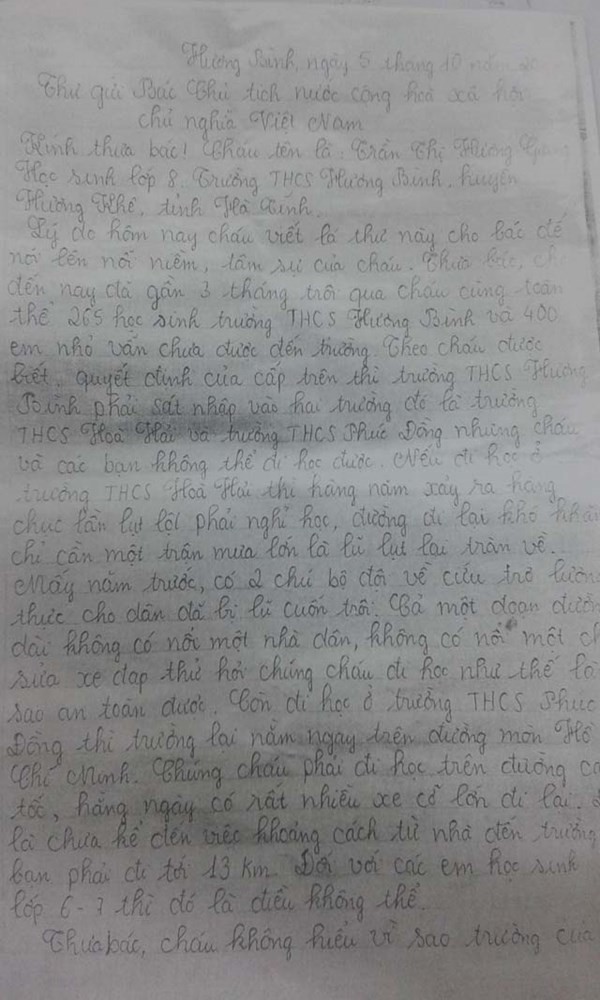 Hương Bình, ngày 5 tháng 10 năm 20
Thư gửi Bác Chủ tịch nước cộng hoà xã hội
chủ nghĩa Việt Nam
Kính thưa bác! Cháu tên là: Trần Thị Hương Giang
Học sinh lớp 8. Trường THCS Hương Bình, huyện
Hương Khê, tỉnh Hà Tĩnh.
Lý do hôm nay cháu viết lá thư này cho bác để
nói lên nỗi niềm, tâm sự của cháu. Thưa bác, ch
đến nay đã gần 3 tháng trôi qua cháu cùng toàn
thể 265 học sinh trường THCS Hương Bình và 400
em nhỏ vẫn chưa được đến trường. Theo cháu được
biết, quyết định của cấp trên thì trường THCS Hương
Bình phải sát nhập vào hai trường đó là trường
THCS Hoà Hải và trường THCS Phúc Đồng nhưng cháu
và các bạn không thể đi học được. Nếu đi học ở
trường THCS Hoà Hải thì hàng năm xảy ra hàng
chục lần lụt lội phải nghỉ học, đường đi lại khó khăn
chỉ cần một trận mưa lớn là lũ lụt lại tràn về.
Mấy năm trước, có 2 chú bộ đội về cứu trợ lương
thực cho dân đã bị lũ cuốn trôi. Cả một đoạn đường
dài không có nổi một nhà dân, không có nổi một ch
sửa xe đạp thử hỏi chúng cháu đi học như thế là
sao an toàn được. Còn đi học ở trường THCS Phúc
Đồng thì trường lại nằm ngay trên đường mòn Hồ
Chí Minh. Chúng cháu phải đi học trên đường ca
tốc, hằng ngày có rất nhiều xe cộ lớn đi lại.
là chưa kể đến việc khoảng cách từ nhà đến trường
bạn phải đi tới 13 km. Đối với các em học sinh
lớp 6-7 thì đó là điều không thể.
Thưa bác, cháu không hiểu vì sao trường của